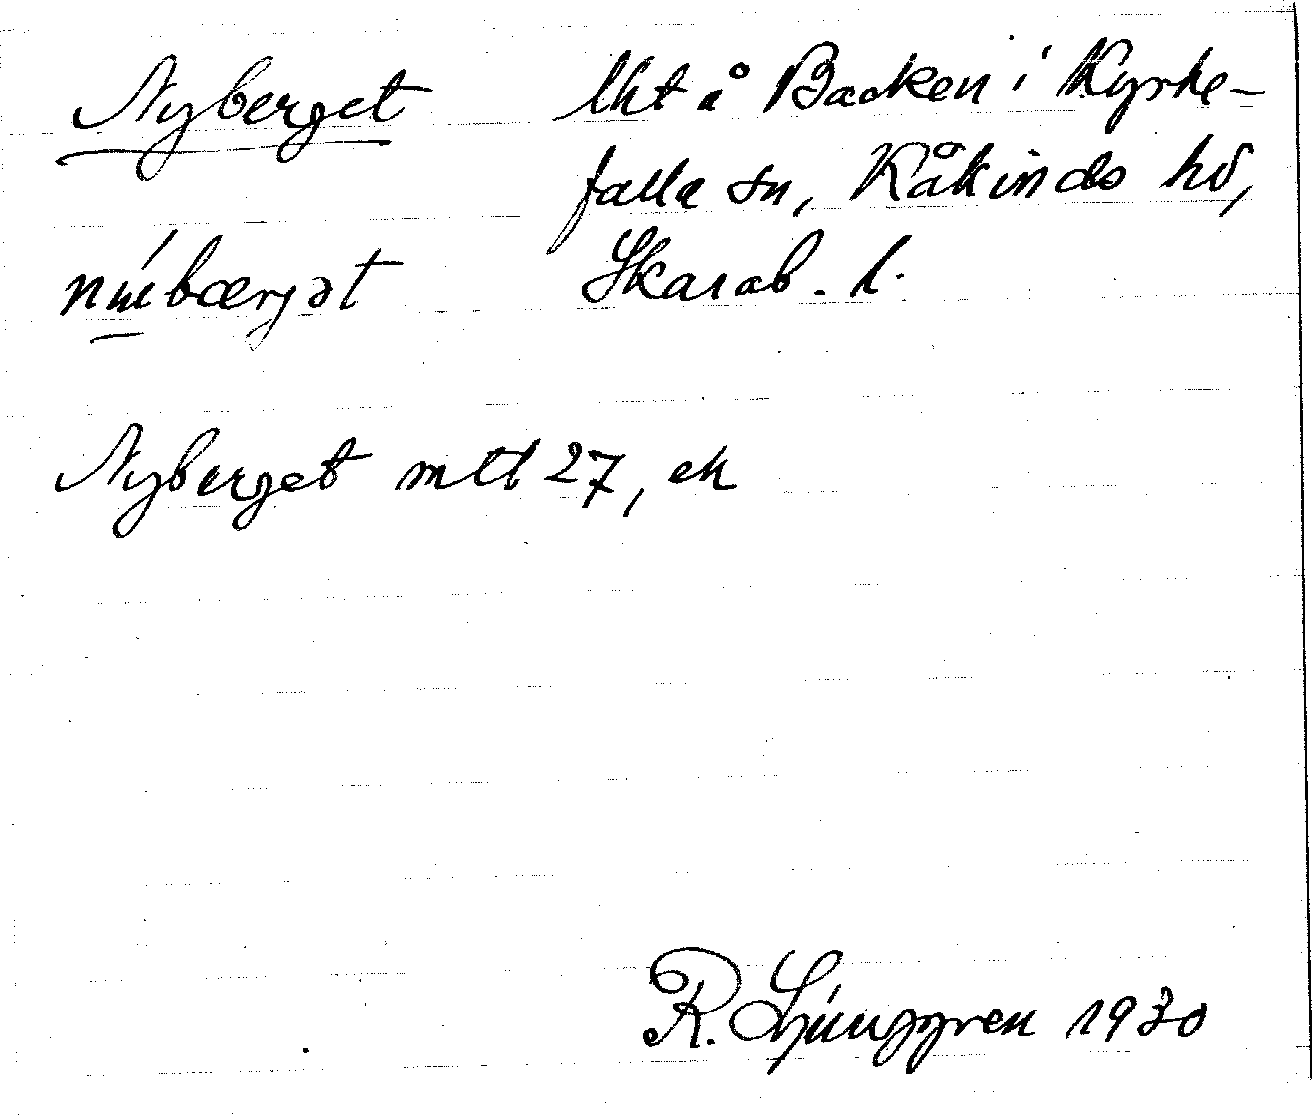 Nyberget lht å Backen i Kyrke-
falla sn, Kåkinds hd,
Skarab. l.
Nyberget mtl 27, ek
R. Ljunggren 1930